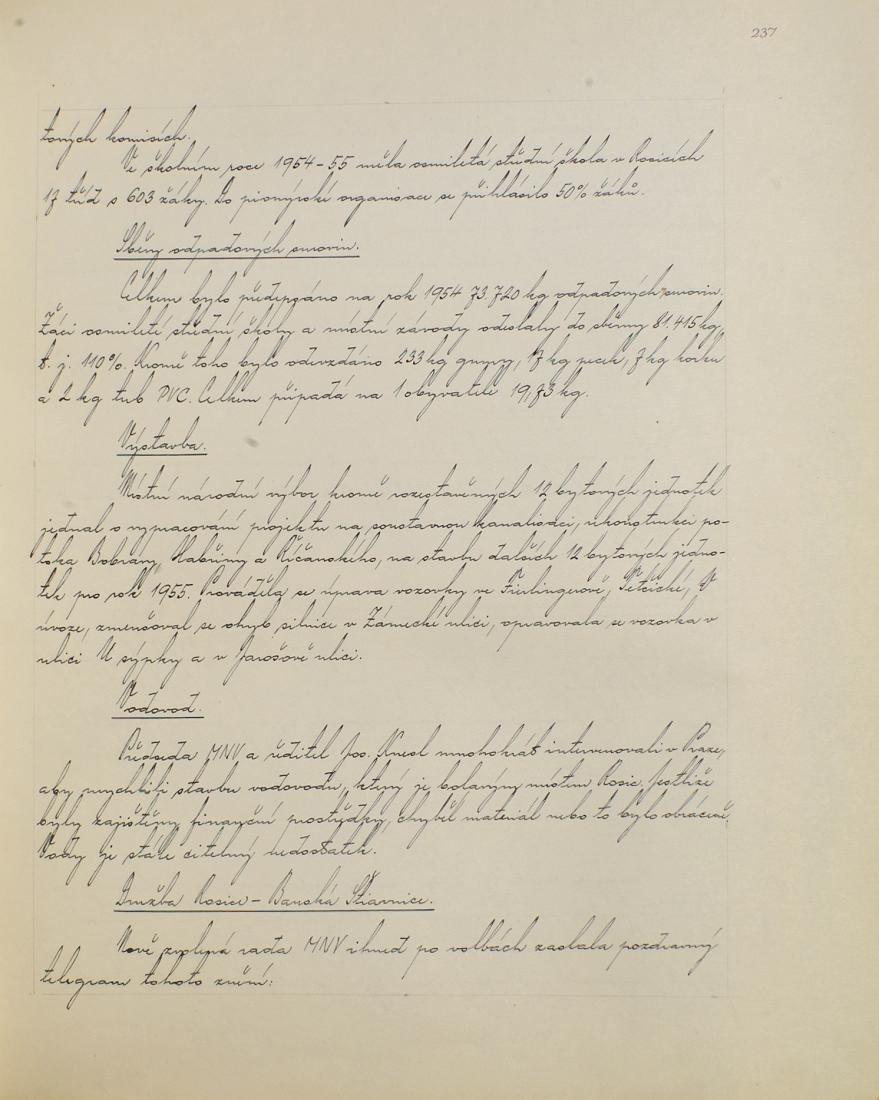 237
tových komisích.
Ve školním roce 1954-55 měla osmiletá střední škola v Rosicích
17 tříd s 603 žáky. Do pionýrské organisace se přihlásilo 50% žáků.
Sběry odpadových surovin.
Celkem bylo předepsáno na rok 1954 73.720 kg odpadových surovin.
Žáci osmileté střední školy a místní závody odeslaly do sběrny 81.415 kg,
t. j. 110%. Kromě toho bylo odevzdáno 233 kg gumy, 17 kg pecek, 7 kg korku
a 2 kg tub PVC. Celkem připadá na 1 obyvatele 19,73 kg.
Výstavba.
Místní národní výbor kromě rozestavěných 12 bytových jednotek
jednal o vypracování projektu na soustavnou kanalisaci, rekonstrukci po-
toka Bobravy, Habřiny a Říčanského, na stavbu dalších 12 bytových jedno-
tek pro rok 1955. Prováděla se úprava vozovky ve Fierlingerově, Tetčické, V
úvoze, zmenšoval se ohyb silnice v Zámecké ulici, opravovala se vozovka v
ulici U sýpky a v Jarošově ulici.
Vodovod.
Předseda MNV a ředitel Jos. Knesl mnohokrát intervenovali v Praze,
aby urychlili stavbu vodovodu, který je bolavým místem Rosic. Jestliže
byly zajištěny finanční prostředky, chyběl materiál nebo to bylo obráceně.
Vody je stále citelný nedostatek.
Družba Rosice - Banská Štiavnica.
Nově zvolená rada MNV ihned po volbách zaslala pozdravný
telegram tohoto znění: